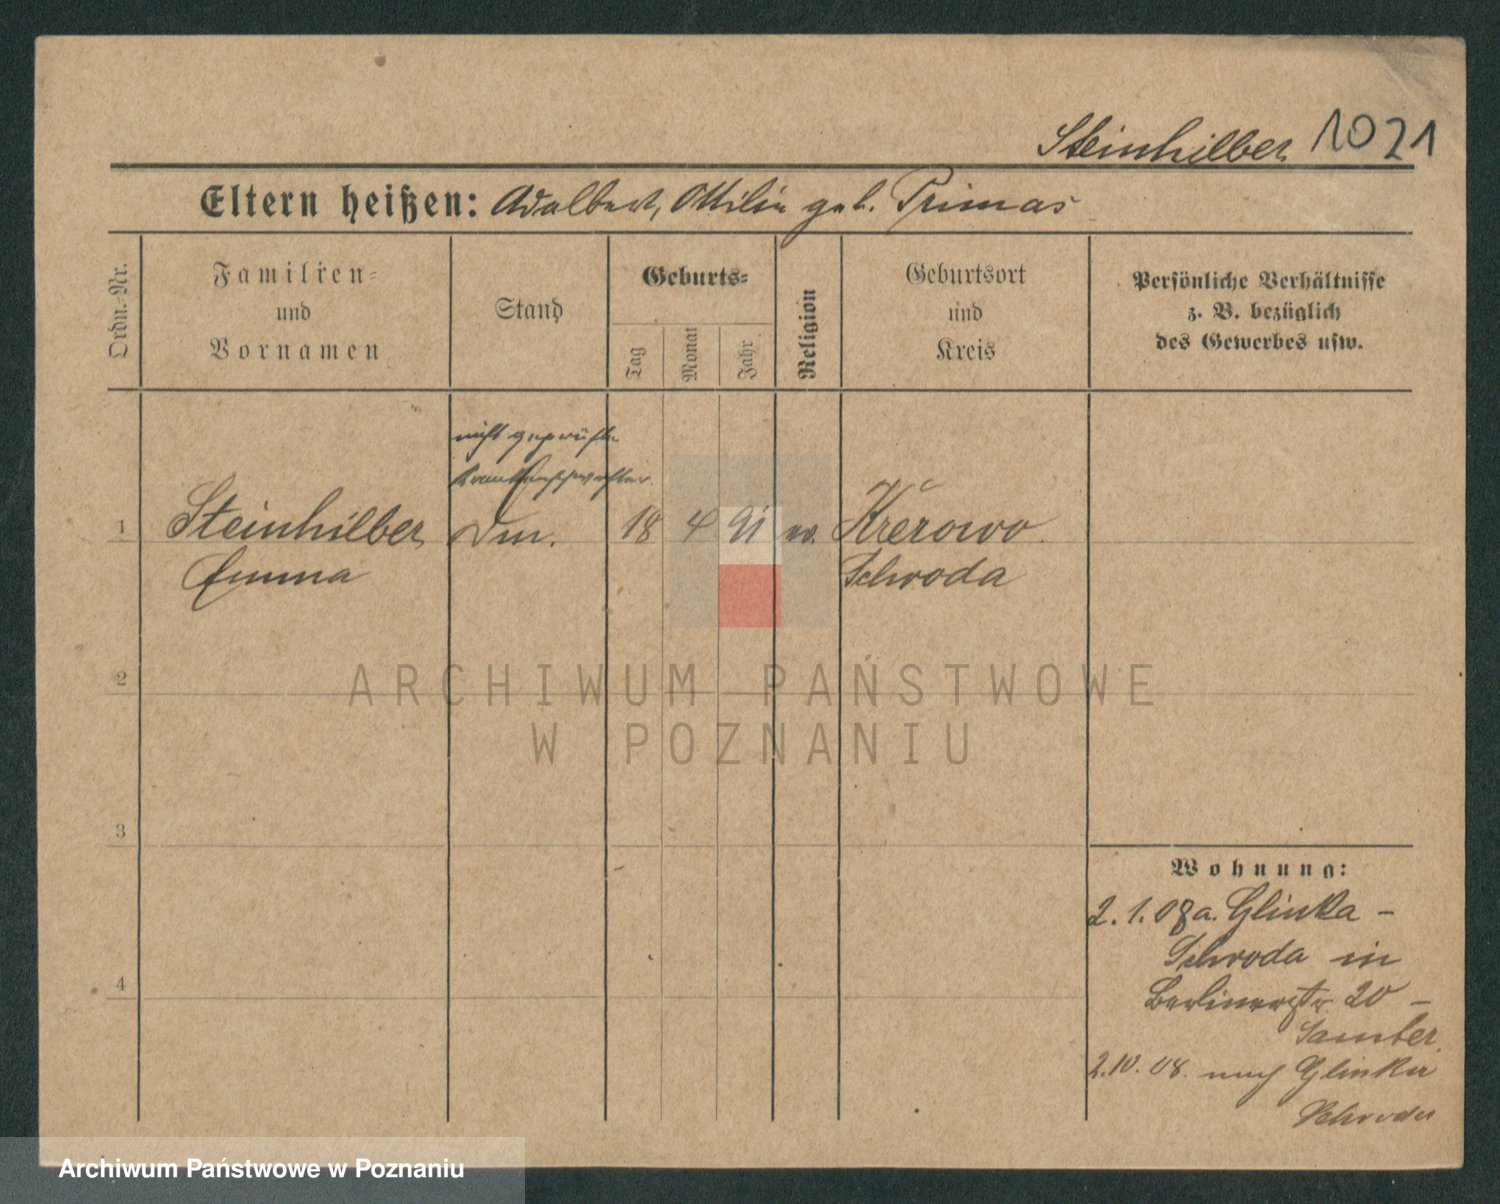 Steinhilber 1021
Eltern heißen: Adalbert, Ottilie geb. Primas
Ordn.-Nr.
Familien-
und
Vornamen
Stand
Geburts-
Tag
Monat
Jahr
Religion
Geburtsort
und
Kreis
Persönliche Verhältnisse
z. B. bezüglich
des Gewerbes usw.
nicht geprüfte
Krankenschwester
1 Steinhilber Dm. 18 4 91 ev. Krerowo
Emma Schroda
2
ARCHIWUM PAŃSTWOWE
W POZNANIU
3
4
Wohnung:
2.1.08 a. Glinka -
Schroda in
Berlinerstr. 20 -
2.10.08. nach Glinka
Schroda
Archiwum Państwowe w Poznaniu